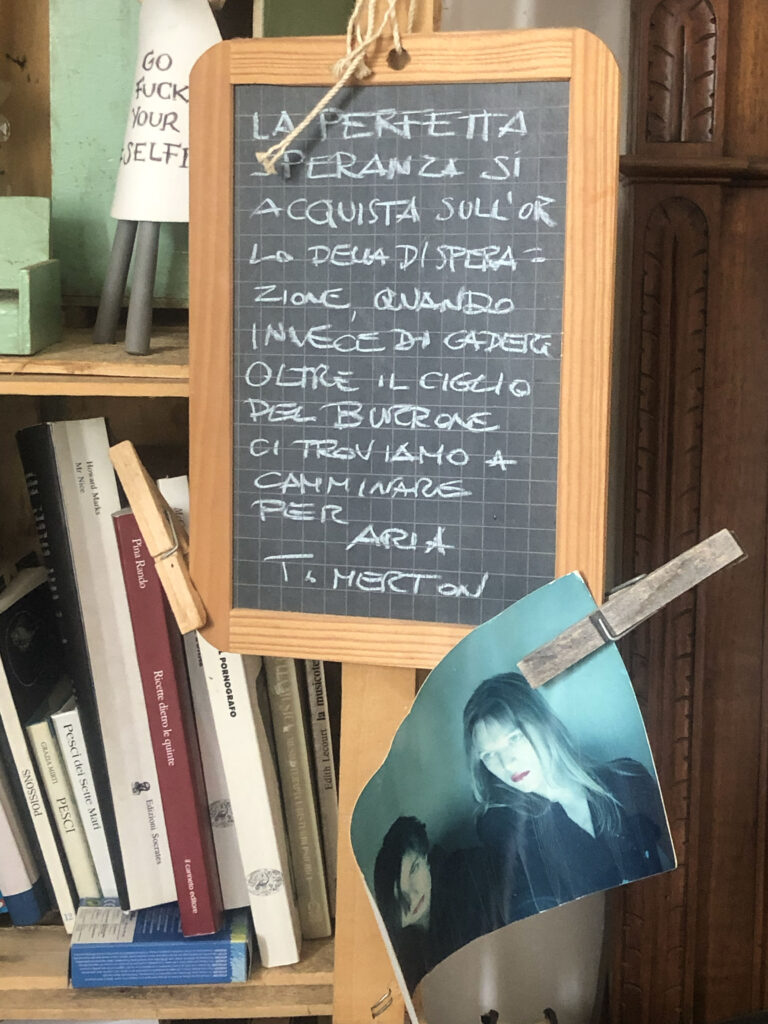 GO
FUCK
YOUR
SELFI
LA PERFETTA
SPERANZA SI
ACQUISTA SULL'OR
LO DELLA DISPERA=
ZIONE, QUANDO
INVECE DI CADERE
OLTRE IL CIGLIO
DEL BURRONE
CI TROVIAMO A
CAMMINARE
PER
ARIA
T. MERTON
Howard Marks
Mr Nice
Edizioni Socrates
Pina Rando
Ricette dietro le quinte
il canneto editore
L PORNOGRAFO
Edith Lecourt la musicote
Pesci dei Sette Mari
PESCI
POISSONS
12